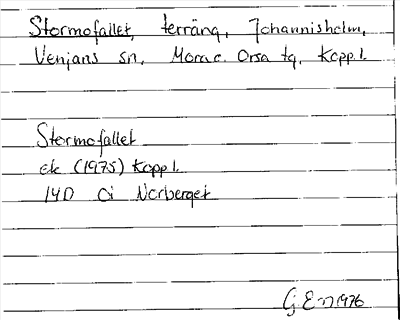 Stormofallet, terräng, Johannisholm,
Venjans sn, Mora o. Orsa tg, Kopp.l.
Stormofallet
ek (1975) Kopp l.
14D Norberget
1976